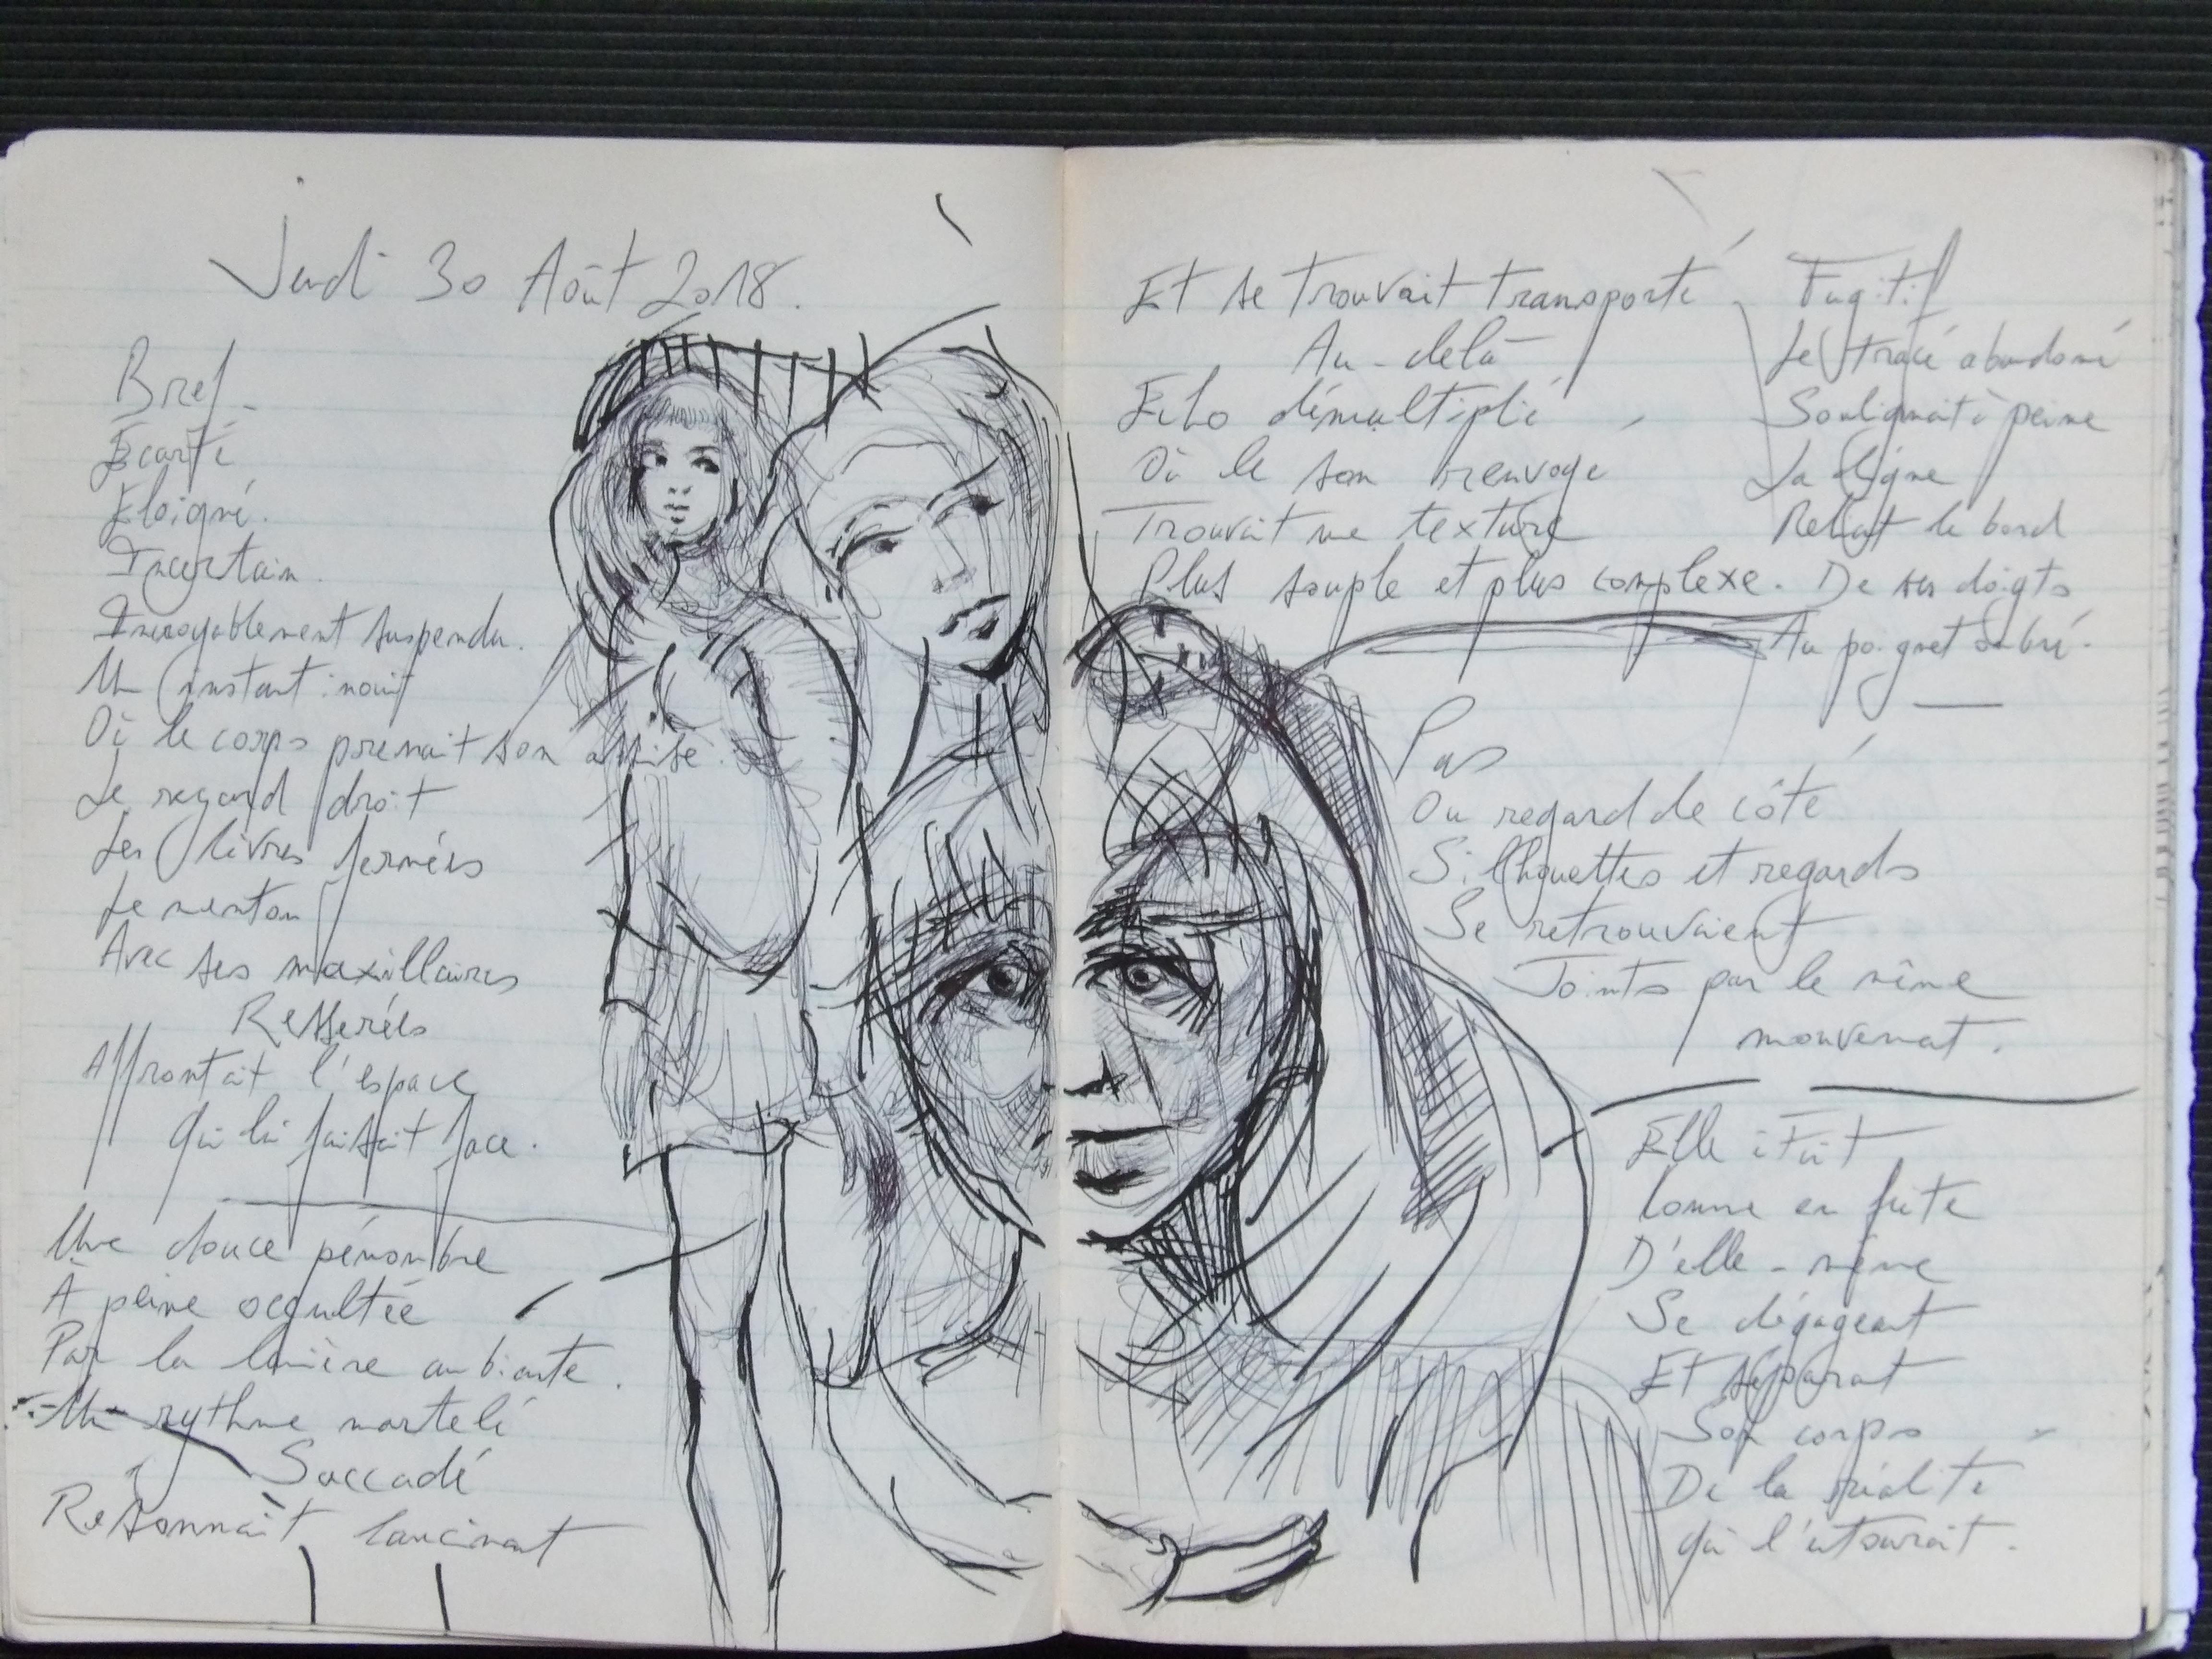 Jeudi 30 Août 2018.
Bref
Écarté
Éloigné.
Incertain.
Incroyablement suspendu.
Un instant inouï
Où le corps prenait son assise.
Le regard droit
Les lèvres fermées
Le menton
Avec ses maxillaires
Resserrés
Affrontait l'espace
Qui lui faisait face.
Une douce pénombre
À peine occultée
Par la lumière ambiante.
Un rythme martelé
Saccadé
Résonnait lancinant
Et se trouvait transporté
Au-delà
Écho démultiplié
Où le son renvoyé
Trouvait une texture
Plus souple et plus complexe.
Fugitif
Le tracé abandonné
Soulignait à peine
La ligne
Reliant le bord
De ses doigts
Au poignet
Pas
Ou regard de côté
Silhouettes et regards
Se retrouvaient
Joints par le même
mouvement.
Elle était
Comme en fuite
D'elle-même
Se dégageant
Et séparant
Son corps
De la réalité
qui l'entourait.